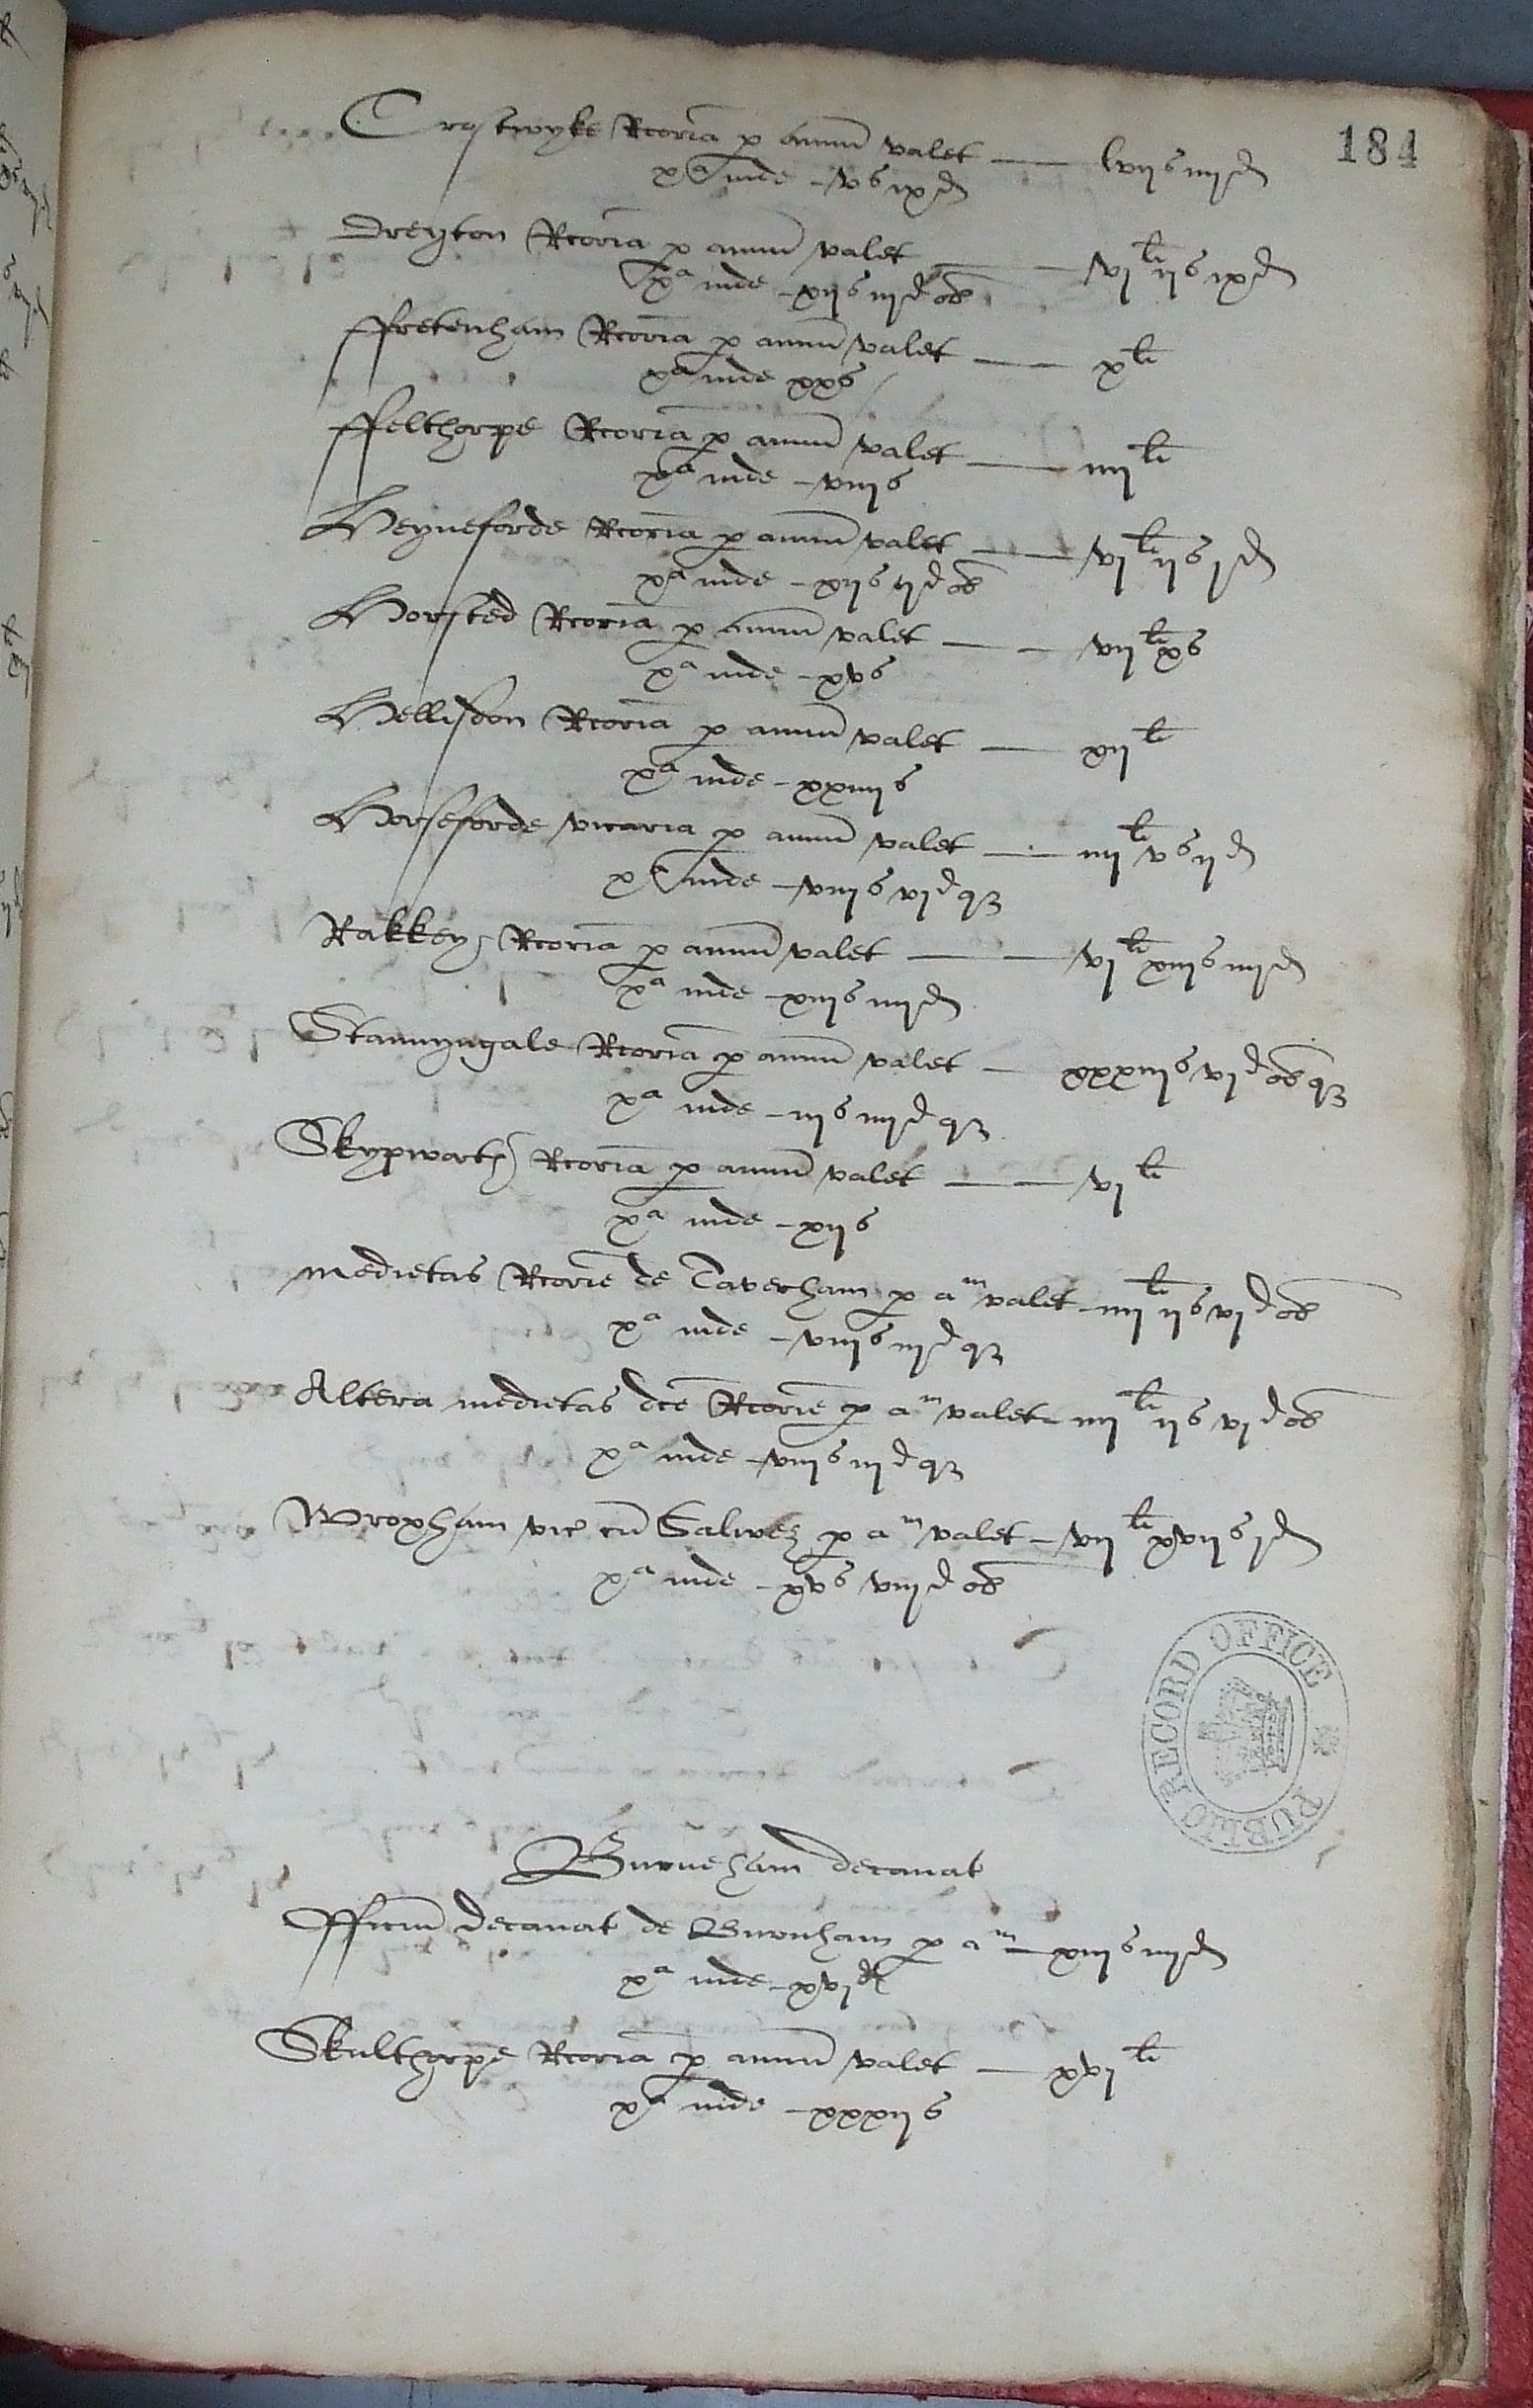 184
Crostwyke Rcoria p annu valet — lvijs iiijd
xa inde - vs ixd
Dreyton Rcoria p annu valet — vjli ijs ixd
xa inde - xijs iijd ob
ffretenham Rcoria p annu valet — xli
xa inde xxs
ffelthorpe Rcoria p annu valet — iiijli
xa inde - viijs
Heyneforde Rcoria p annu valet — vjli ijs jd
xa inde - xijs ijd ob
Horsted Rcoria p annu valet — vijli xs
xa inde - xvs
Hellisdon Rcoria p annu valet — xijli
xa inde - xxiiijs
Horseforde vicaria p annu valet — iiijli vs ijd
xa inde - viijs vjd qz
Rakkey Rcoria p annu valet — vjli xiijs iiijd
xa inde - xiijs iiijd
Stannyngale Rcoria p annu valet — xxxiijs vjd ob qz
xa inde - iijs iiijd qz
Skypworth Rcoria p annu valet — vjli
xa inde - xijs
medietas Rcorie de Taverham p am valet - iiijli ijs vjd ob
xa inde - viijs iijd qz
Altera medietas dce Rcorie p am valet - iiijli ijs vjd ob
xa inde - viijs iijd qz
Wroxham vic cu Salwez p am valet - vijli xvijs jd
xa inde - xvs viijd ob
PUBLIC RECORD OFFICE
Burneham decanat
Officiu decanat de Burnham p am - xiijs iiijd
xa inde - xvjd
Skulthorpe Rcoria p annu valet — xvjli
xa inde - xxxijs